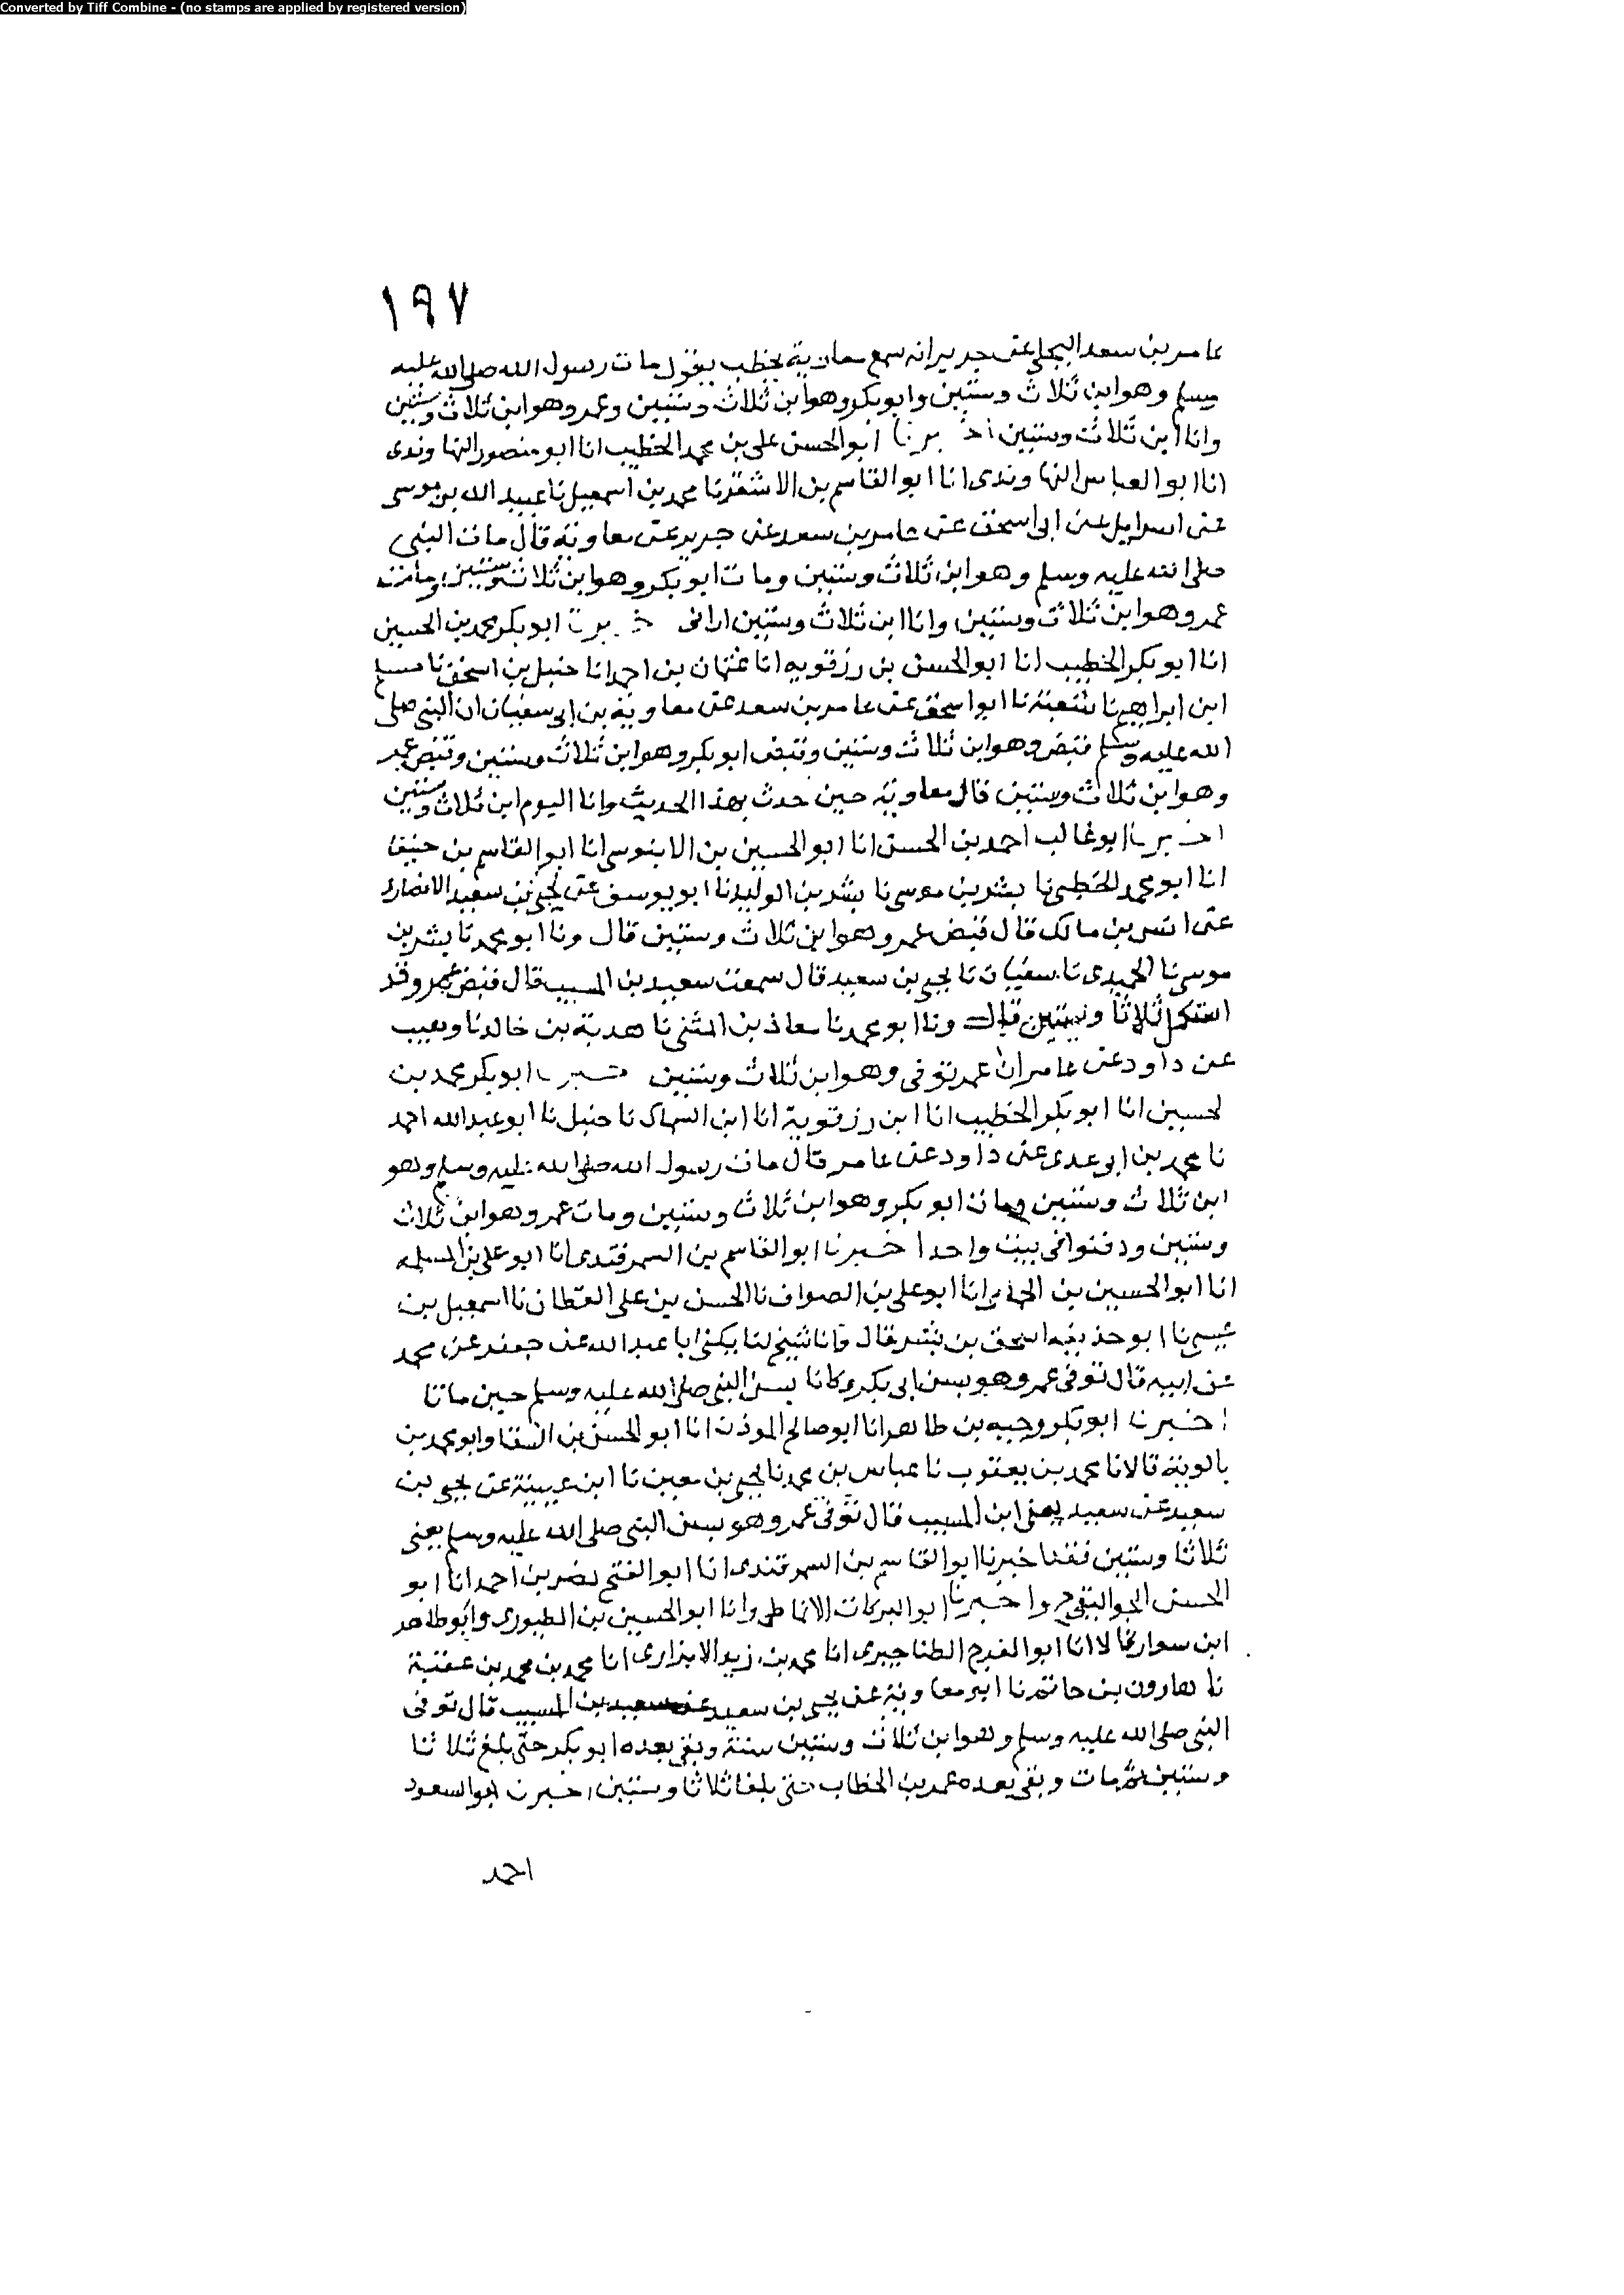 Converted by Tiff Combine - (no stamps are applied by registered version)
١٩٧
عامر بن سعد البجلي عن جرير انه سمع معاوية يخطب يقول مات رسول الله صلى الله عليه
وسلم وهو ابن ثلاث وستين وابو بكر وهو ابن ثلاث وستين وعمر وهو ابن ثلاث وستين
وانا ابن ثلاث وستين اخبرنا ابو الحسن علي بن محمد الخطيب انا ابو منصور النهاوندى
انا ابو العباس النهاوندى انا ابو القاسم بن الاشقر نا محمد بن اسمعيل نا عبيد الله بن موسى
عن اسرايل عن ابى اسحق عن عامر بن سعد عن جرير عن معاوية قال مات النبي
صلى الله عليه وسلم وهو ابن ثلاث وستين ومات ابو بكر وهو ابن ثلاث وستين ومات
عمر وهو ابن ثلاث وستين وانا ابن ثلاث وستين ارانى خبرنا ابو بكر محمد بن الحسين
انا ابو بكر الخطيب انا ابو الحسن بن رزقويه انا عثمان بن احمد نا حنبل بن اسحق نا مسلم
ابن ابراهيم نا شعبة نا ابو اسحق عن عامر بن سعد عن معاوية بن ابى سفيان ان النبي صلى
الله عليه وسلم قبض وهو ابن ثلاث وستين وقبض ابو بكر وهو ابن ثلاث وستين وقبض عمر
وهو ابن ثلاث وستين قال معاوية حين حدث بهذا الحديث وانا اليوم ابن ثلاث وستين
اخبرنا ابو غالب احمد بن الحسن انا ابو الحسين بن الابنوسى انا ابو القاسم بن حنيقا
انا ابو محمد الخطبى نا بشر بن موسى نا بشر بن الوليد نا ابو يوسف عن يحيى بن سعيد الانصارى
عن انس بن مالك قال قبض عمر وهو ابن ثلاث وستين قال ونا ابو محمد نا بشر بن
موسى نا الحميدى نا سفيان نا يحيى بن سعيد قال سمعت سعيد بن المسيب قال قبض عمر وقد
استكمل ثلاثا وستين قال ونا ابو محمد نا معاذ بن المثنى نا هدبة بن خالد نا وهيب
عن داود عن عامر ان عمر توفى وهو ابن ثلاث وستين خبرنا ابو بكر محمد بن
لحسين انا ابو بكر الخطيب انا ابن رزقوية انا ابن السماك نا حنبل نا ابو عبد الله احمد
نا محمد بن ابو عدى عن داود عن عامر قال مات رسول الله صلى الله عليه وسلم وهو
ابن ثلاث وستين ومات ابو بكر وهو ابن ثلاث وستين ومات عمر وهو ابن ثلاث
وستين ودفنوا فى بيت واحد اخبرنا ابو القاسم بن السمرقندى انا ابو علي بن المسلمه
انا ابو الحسين بن انا ابو علي بن الصواف نا الحسن بن علي القطان نا اسمعيل بن
عيسى نا ابو حذيفه اسحق بن بشر قال ونا شيخ لنا يكنى ابا عبد الله عن جعفر عن محمد
عن ابيه قال توفى عمر وهو بسن ابى بكر وكانا بسن النبي صلى الله عليه وسلم حين ماتا
اخبرنا ابو بكر وجيه بن طاهر انا ابو صالح الموذن انا ابو الحسن بن السقا وابو محمد بن
بالوية قالا نا محمد بن يعقوب نا عباس بن محمد نا يحيى بن معين نا ابن عيينة عن يحيى بن
سعيد عن سعيد يعنى ابن المسيب قال توفى عمر وهو بسن النبي صلى الله عليه وسلم يعني
ثلاثا وستين اخبرنا ابو القاسم بن السمرقندى انا ابو الفتح نصر بن احمد انا ابو
الحسن الجواليقي واخبرنا ابو البركات الانماطى وانا ابو الحسين بن الطيورى وابو طاهر
ابن سوار قالا انا ابو الفرج الطناجيرى انا محمد بن زيد الابزارى انا محمد بن محمد بن عقبة
نا هارون بن حاتم نا ابو معاوية عن يحيى بن سعيد عن سعيد بن المسيب قال توفى
النبي صلى الله عليه وسلم وهو ابن ثلاث وستين سنة وبقى بعده ابو بكر حتى بلغ ثلاثا
وستين ثم مات وبقى بعده عمر بن الخطاب حتى بلغ ثلاثا وستين اخبرنا ابو السعود
احمد